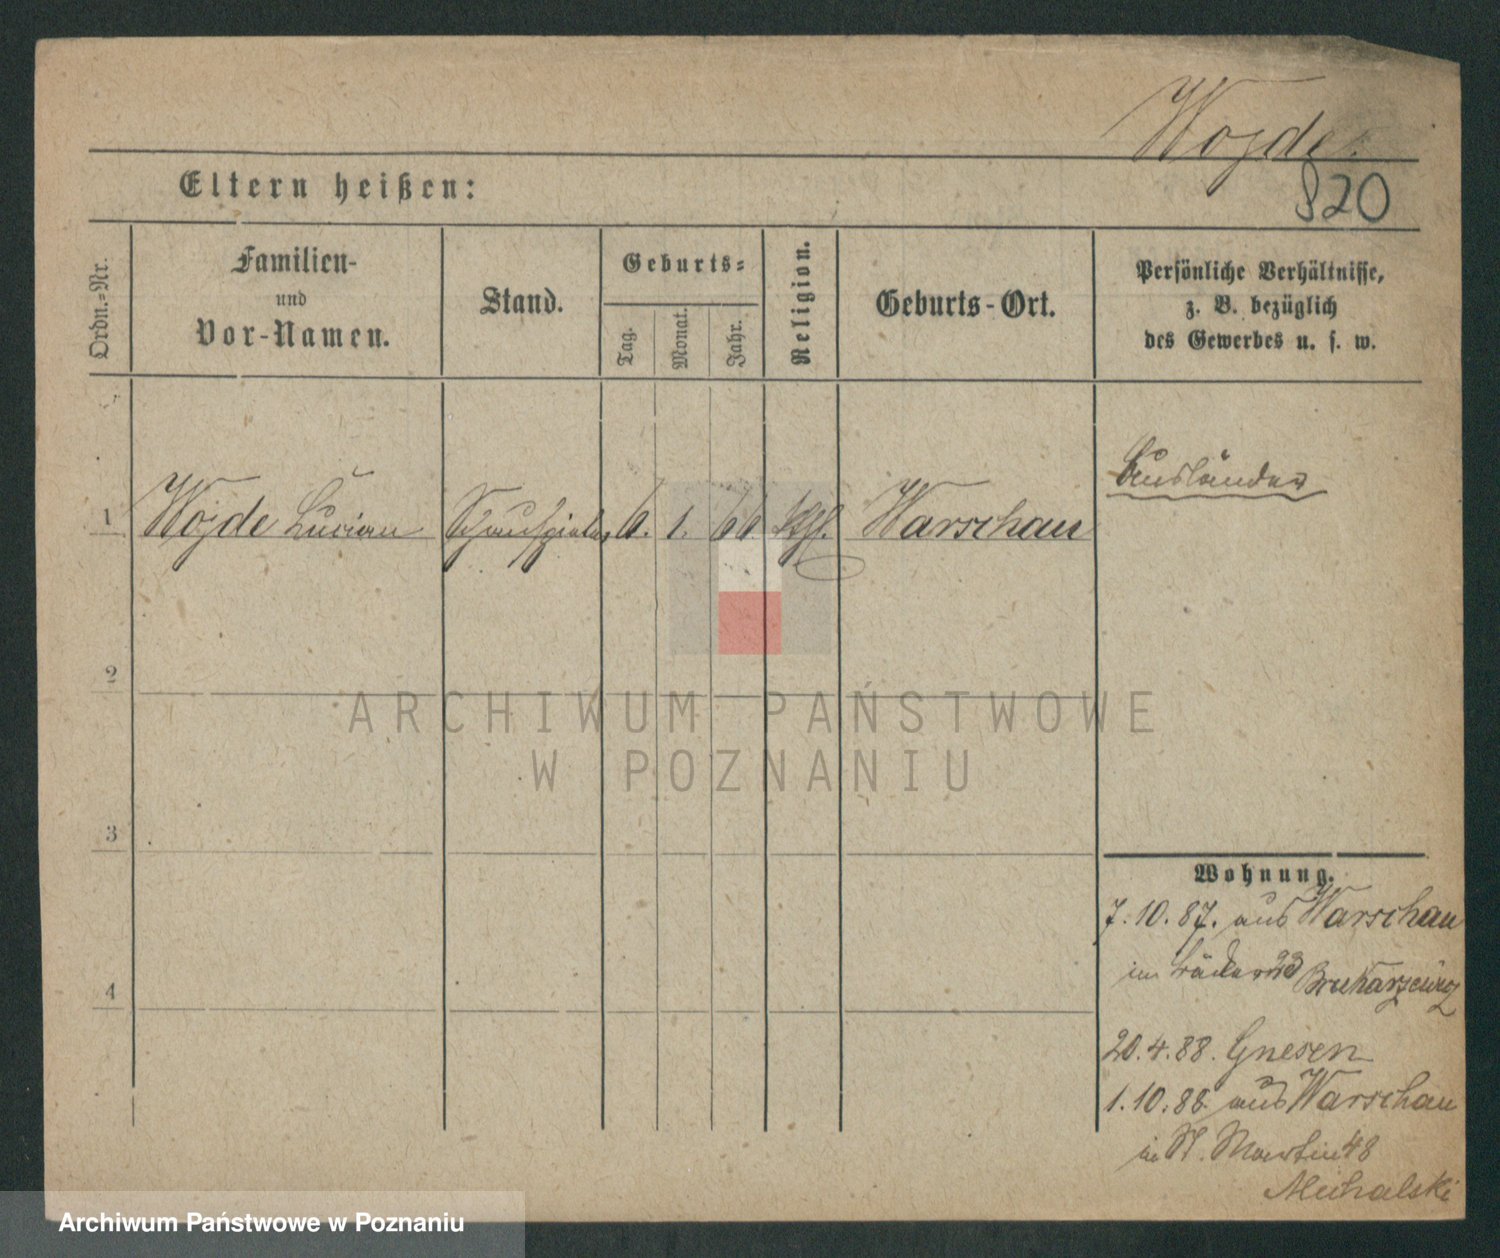 Wojde.
Eltern heißen:
820
Ordn.-Nr.
Familien-
und
Vor-Namen.
Stand.
Geburts-
Tag.
Monat.
Jahr.
Religion.
Geburts-Ort.
Persönliche Verhältnisse,
z. B. bezüglich
des Gewerbes u. s. w.
Ausländer
1 Wojde Lucian Schauspieler 6. 1. 61 kth. Warschau
2
ARCHIWUM PAŃSTWOWE
W POZNANIU
3
Wohnung.
7.10.87. aus Warschau
im
4
20.4.88. Gnesen
1.10.88 aus Warschau
in St. Martin 48
Michalski
Archiwum Państwowe w Poznaniu